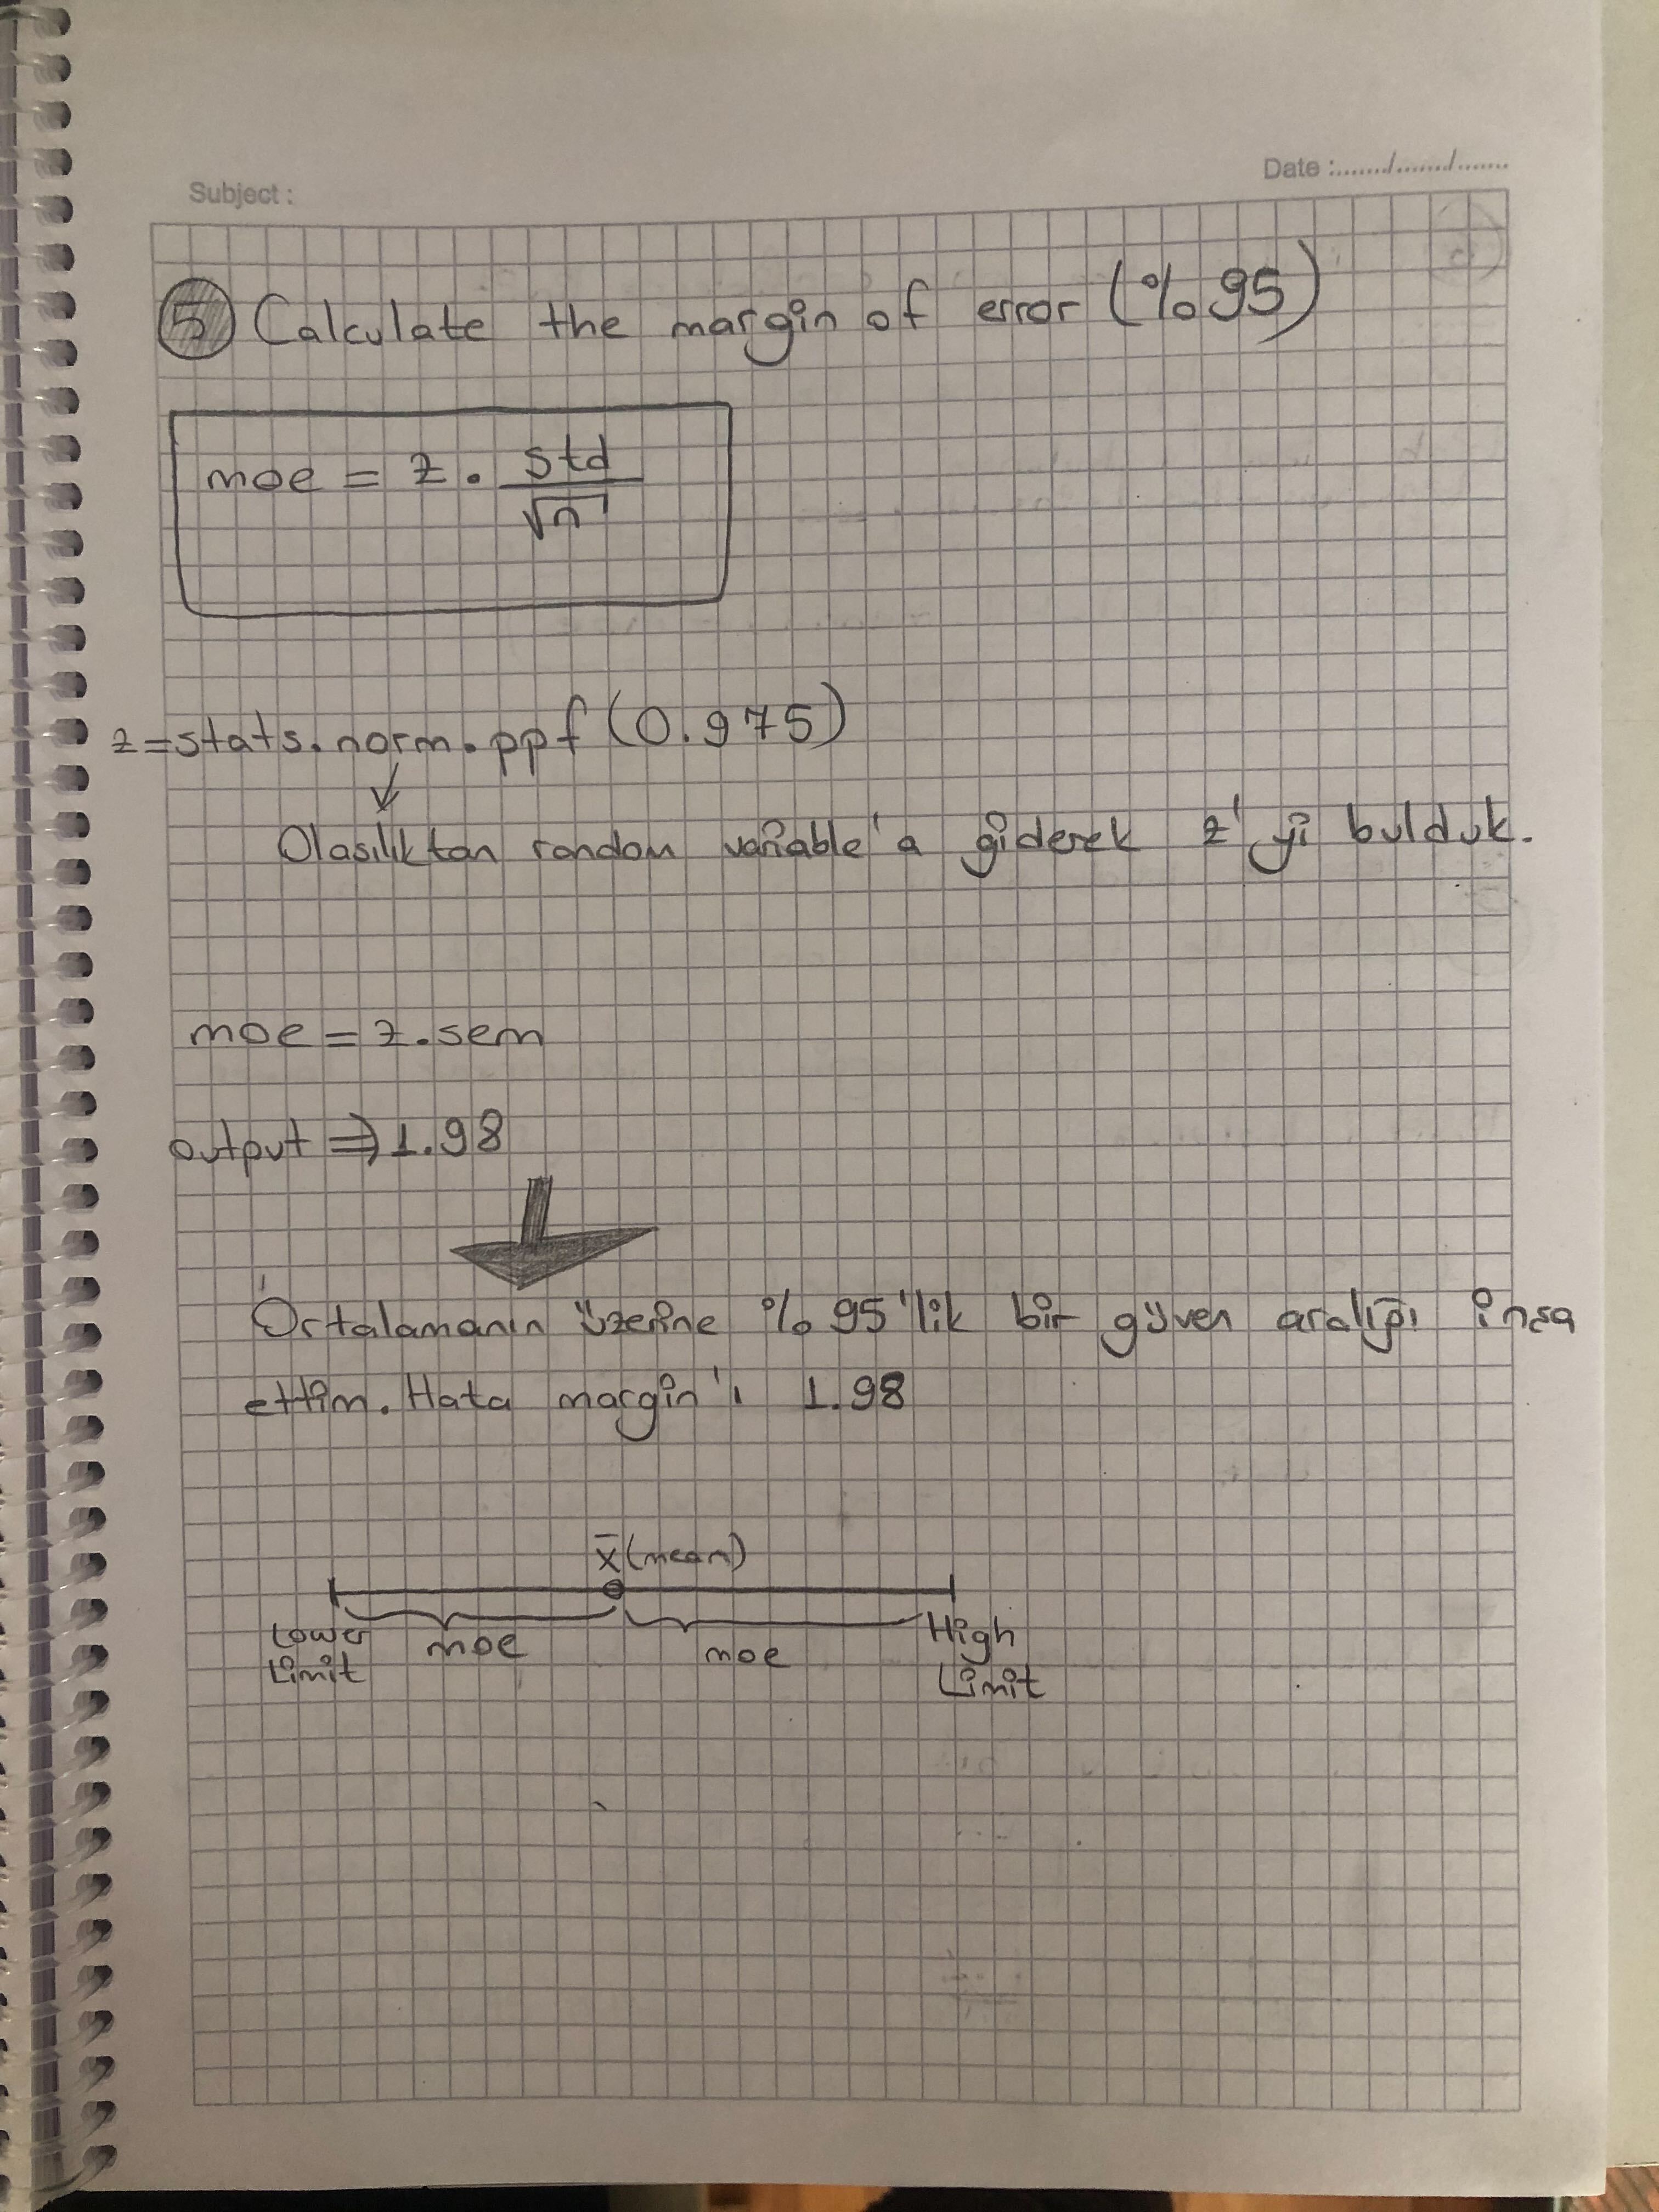 Subject :
Date :......../......../........
5 Calculate the margin of error (%95)
moe = z . std / √n
z=stats.norm.ppf(0.975)
Olasılıktan random variable'a giderek z'yi bulduk.
moe = z.sem
output ⇒ 1.98
Ortalamanın üzerine %95'lik bir güven aralığı inşa
ettim. Hata margin'ı 1.98
x̄ (mean)
Lower Limit
moe
moe
High Limit